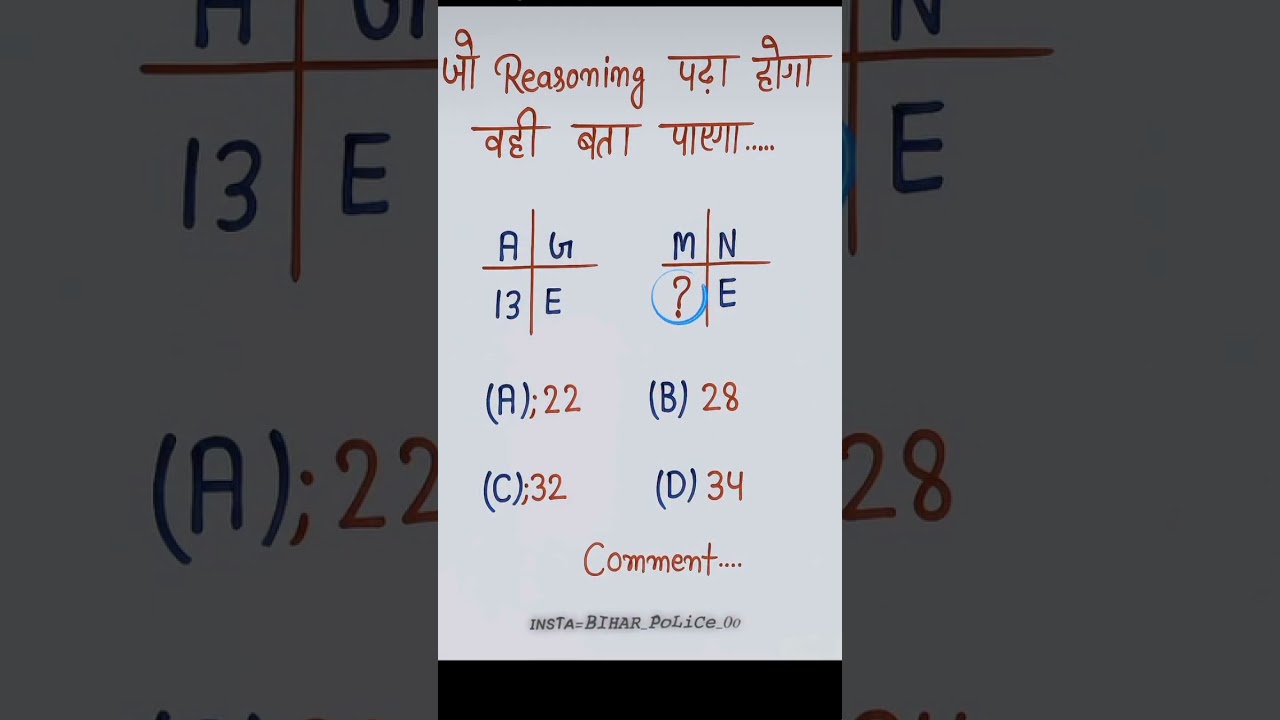 जो Reasoning पढ़ा होगा
वही बता पाएगा.....
A G M N
13 E ? E
(A);22 (B) 28
(C);32 (D) 34
Comment....
INSTA=BIHAR_PoLiCe_Oo